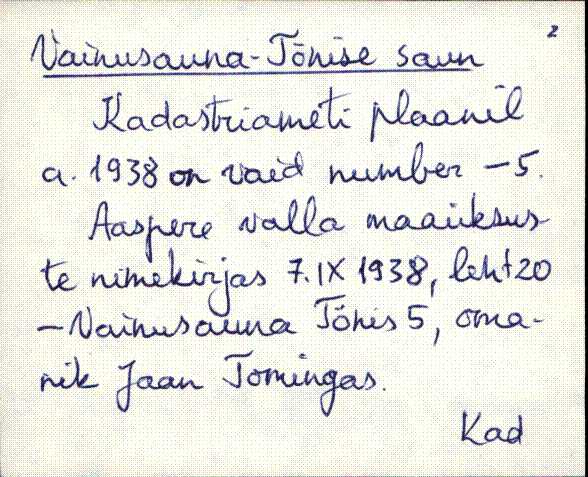 2
Vainusauna-Tõnise saun
Kadastriameti plaanil
a. 1938 on vaid number -5.
Aaspere valla maaüksus-
te nimekirjas 7.IX 1938, leht 20
- Vainusauna Tõnis 5, oma-
nik Jaan Tomingas.
Kad